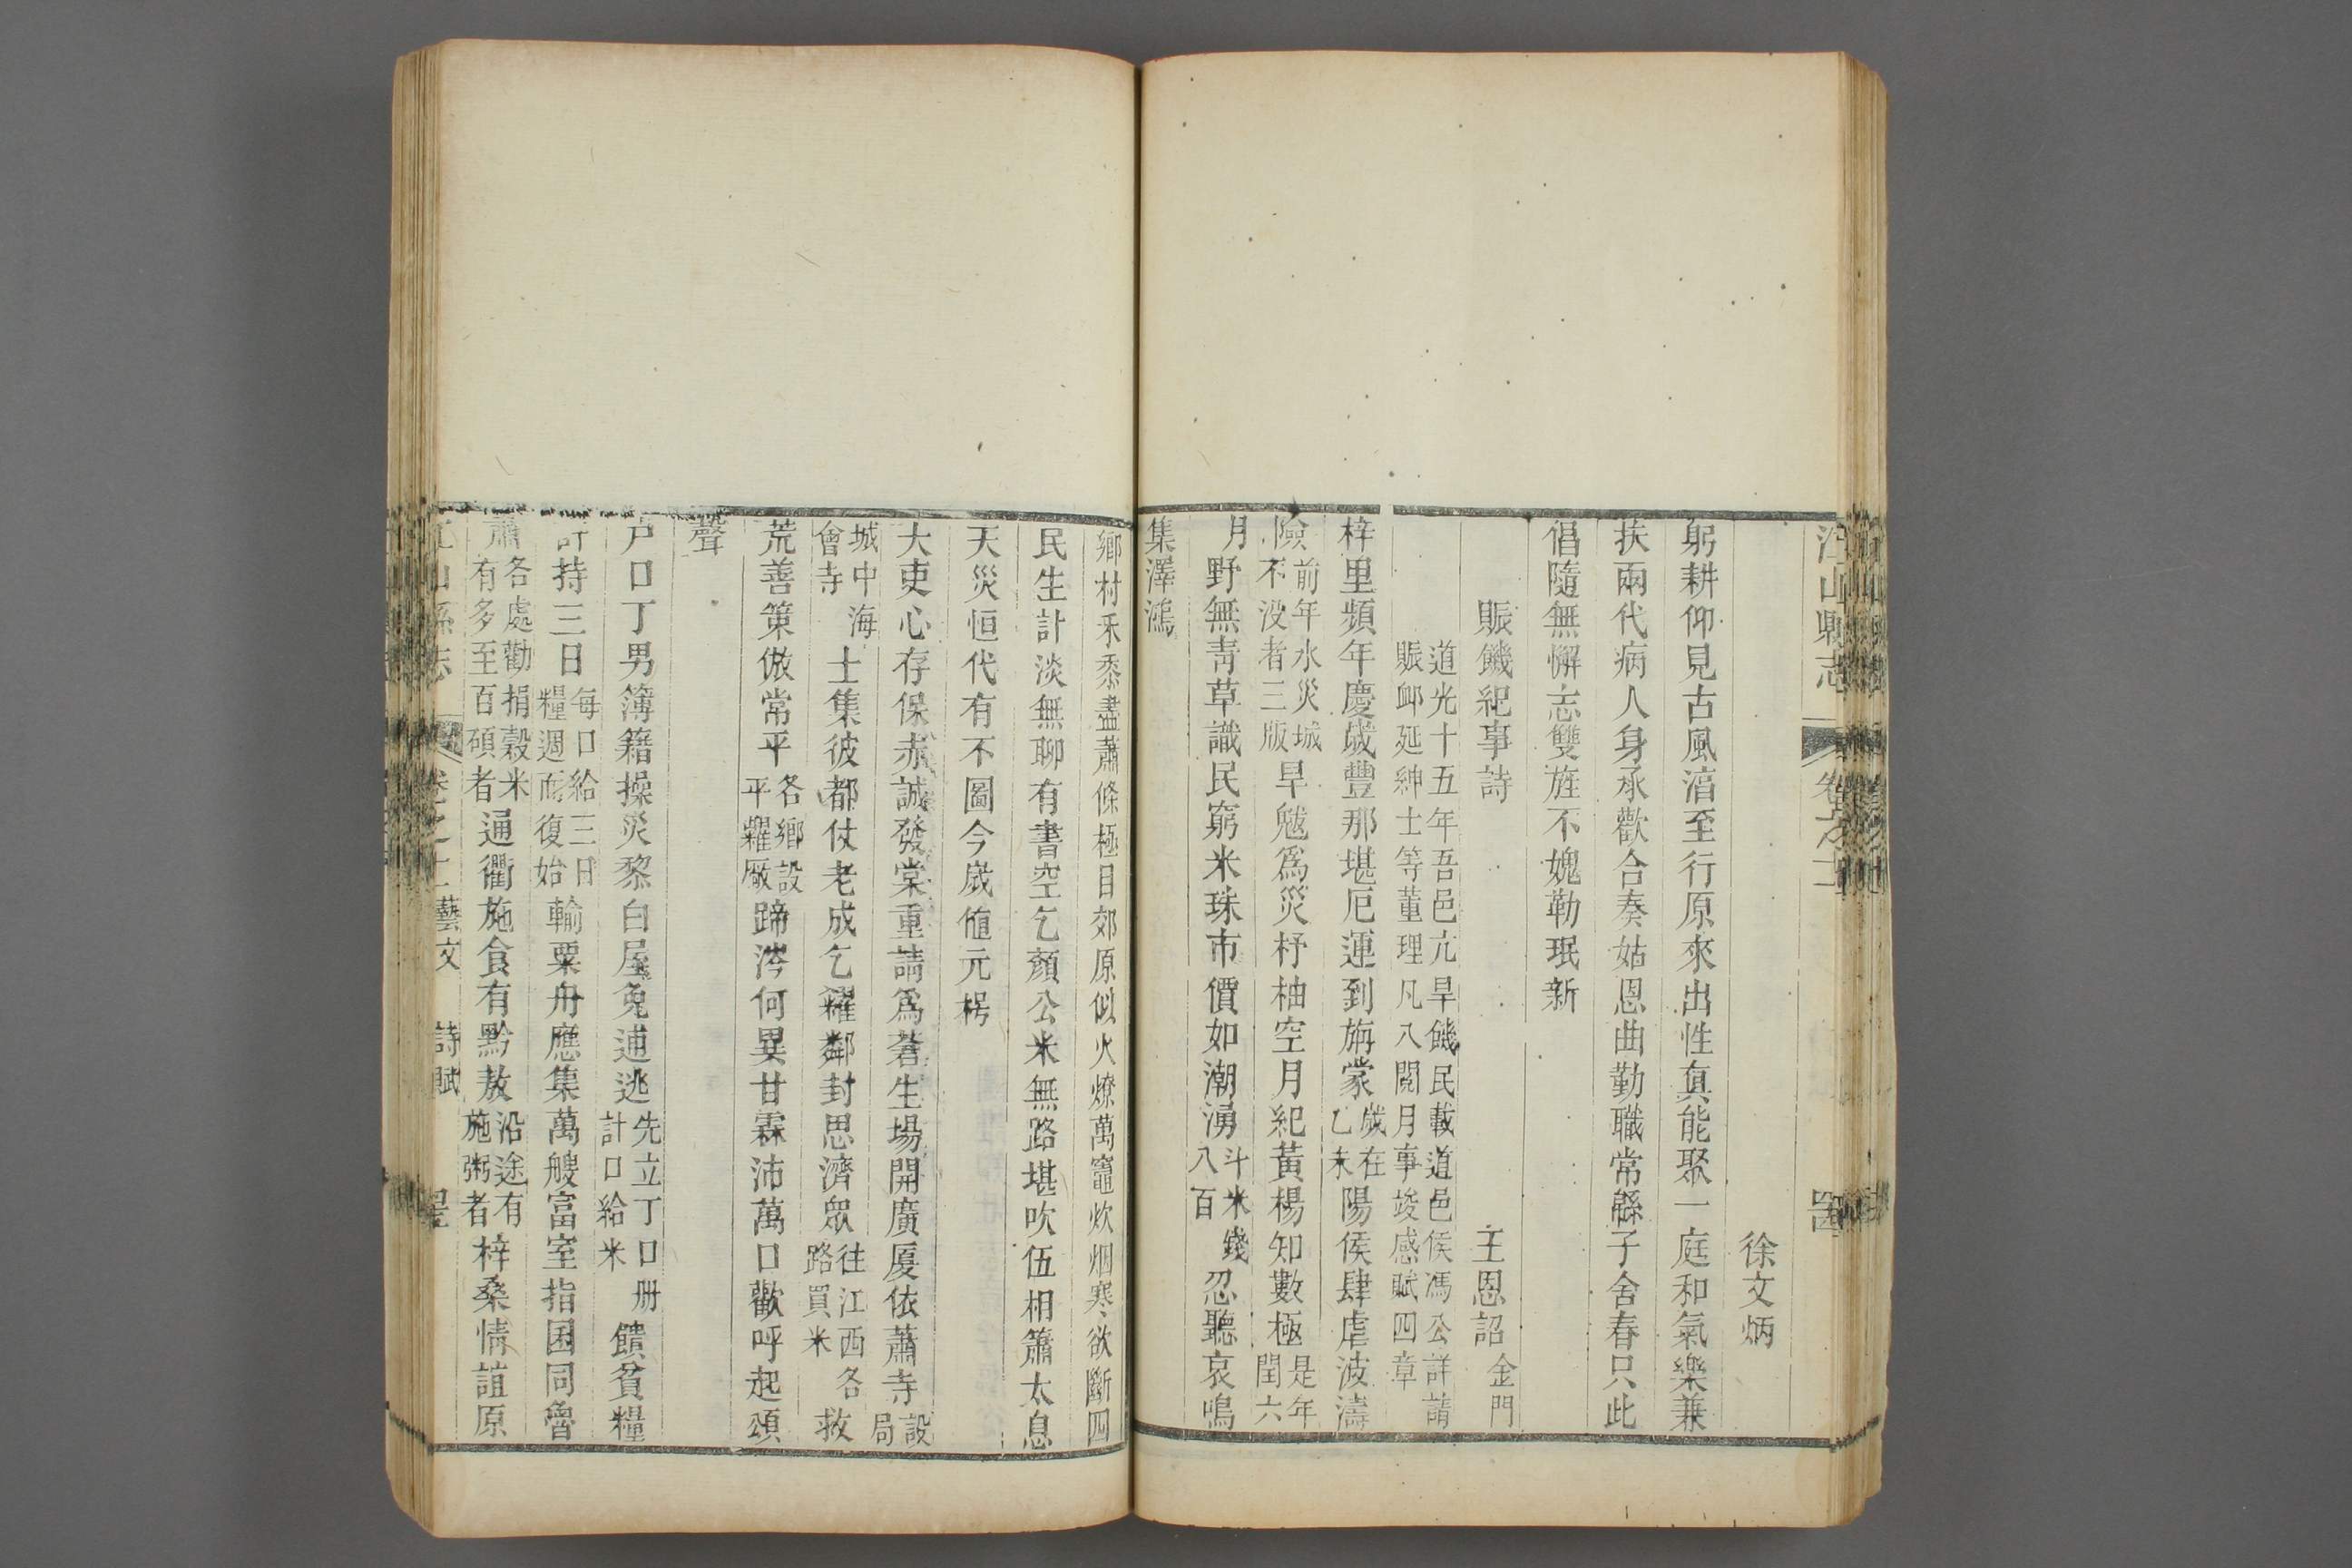 江山縣志 卷之十二
徐文炳
躬耕仰見古風淳至行原來出性真能聚一庭和氣樂兼
扶兩代病人身承歡合奏姑恩曲勤職常繇子舍春只此
倡隨無懈志雙旌不媿勒珉新
賑饑紀事詩 王恩詔金門
道光十五年吾邑亢旱饑民載道邑侯馮公詳請
賑卹延紳士等董理凡八閱月事竣感賦四章
梓里頻年慶歲豐那堪厄運到旃蒙歲在乙未陽侯肆虐波濤
險前年水災城不没者三版旱魃為災杼柚空月紀黃楊知數極是年閏六
月野無靑草識民窮米珠市價如潮湧斗米錢八百忍聽哀鳴
集澤鴻
鄉村禾黍盡蕭條極目郊原似火燎萬竈炊烟寒欲斷四
民生計淡無聊有書空乞顏公米無路堪吹伍相簫太息
天災恒代有不圖今歲值元枵
大吏心存保赤誠發棠重請爲蒼生場開廣厦依蕭寺設局
城中海會寺士集彼都仗老成乞糴鄰封思濟眾往江西各路買米救
荒善策倣常平各鄉設平糶廠蹄涔何異甘霖沛萬口歡呼起頌
聲
户口丁男簿籍操災黎白屋免逋逃先立丁口册計口給米饋貧糧
計持三日每口給三日糧週而復始輸粟舟應集萬艘富室指囷同魯
肅各處勸捐穀米有多至百碩者通衢施食有黔敖沿途有施粥者梓桑情誼原
江山縣志 卷之十二藝文 詩賦